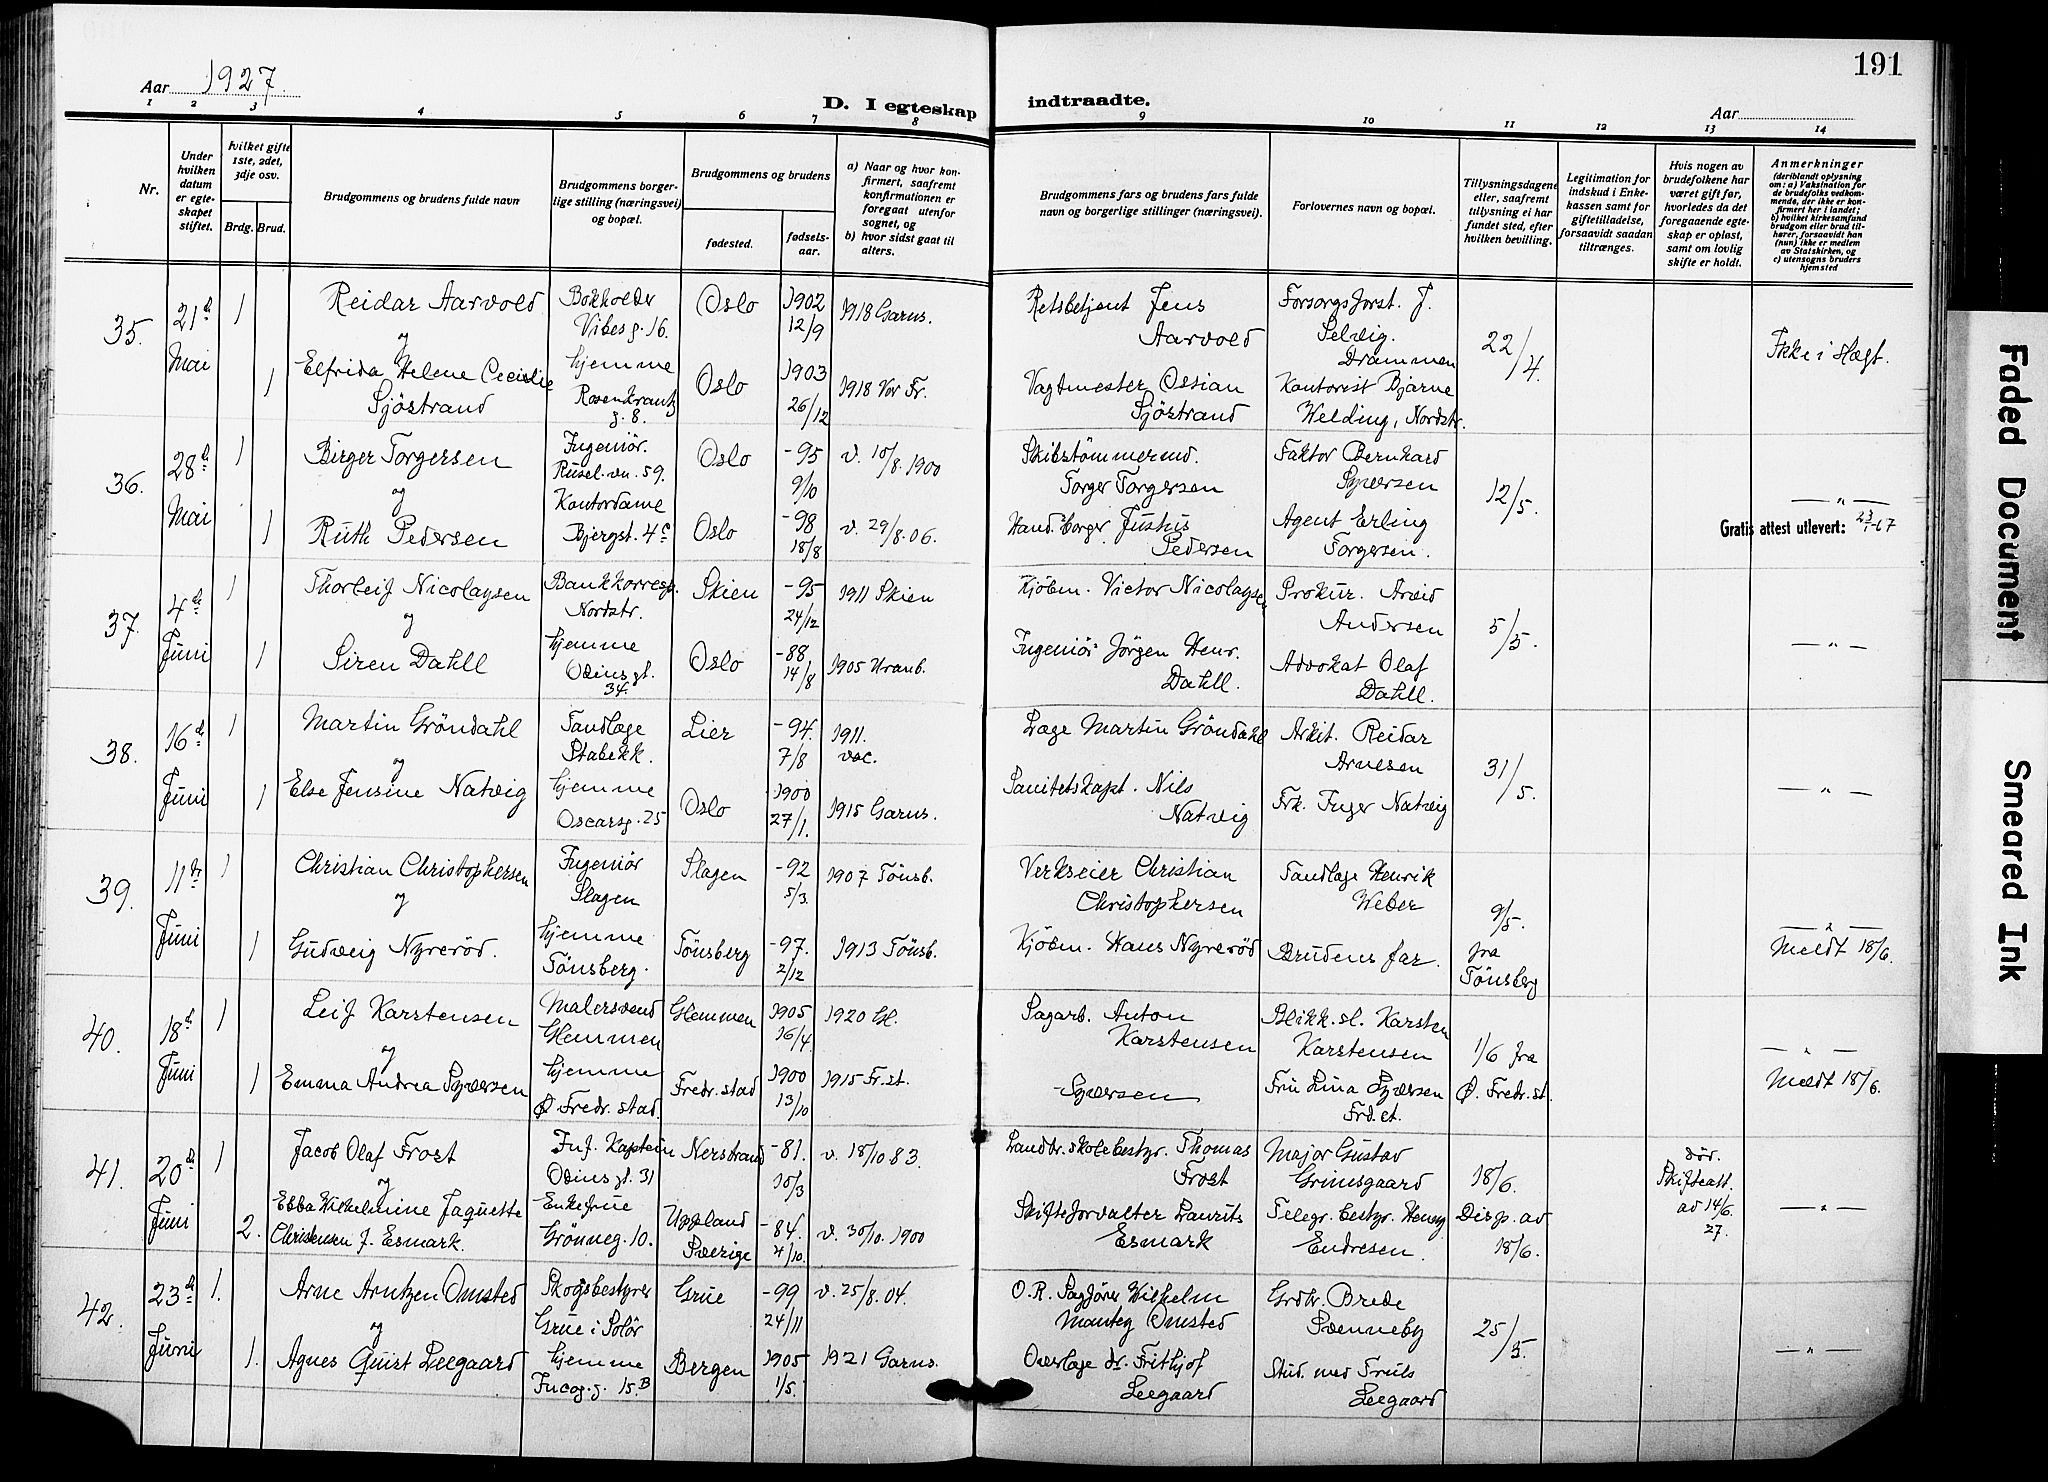 191
Aar 1927.
D. I egteskap indtraadte.
Aar
1 2 3 4 5 6 7 8 9 10 11 12 13 14
Nr.
Under hvilken datum er egteskapet stiftet.
hvilket gifte 1ste, 2det, 3dje osv.
Brdg. Brud.
Brudgommens og brudens fulde navn
Brudgommens borgerlige stilling (næringsvei) og bopæl.
Brudgommens og brudens
fødested.
fødselsaar.
a) Naar og hvor konfirmert, saafremt konfirmationen er foregaat utenfor sognet, og
b) hvor sidst gaat til alters.
Brudgommens fars og brudens fars fulde navn og borgerlige stillinger (næringsvei).
Forlovernes navn og bopæl.
Tillysningsdagene eller, saafremt tillysning ei har fundet sted, efter hvilken bevilling.
Legitimation for indskud i Enkekassen samt for giftetilladelse, forsaavidt saadan tiltrænges.
Hvis nogen av brudefolkene har været gift før, hvorledes da det foregaaende egteskap er opløst, samt om lovlig skifte er holdt.
Anmerkninger
(deriblandt oplysning om: a) Vaksination for de brudefolks vedkommende, der ikke er konfirmert her i landet;
b) hvilket kirkesamfund brudgom eller brud tilhører, forsaavidt han (hun) ikke er medlem av Statskirken, og
c) utensogns bruders hjemsted
35. 21d Mai
1 Reidar Aarvold
Bokholder Vibesg. 16.
Oslo
1902 12/9
1918 Garns.
Retsbetjent Jens Aarvold
Forsorgsforst. J. Selvig. Drammen
22/4.
Ikke i Slægt.
og
1 Elfrida Helene Cecilie Sjöstrand
hjemme Rosenkrantz g. 8.
Oslo
1903 26/12
1918 Vor Fr.
Vagtmester Ossian Sjöstrand
Kontorist Bjarne Welding, Nordstr.
36. 28d Mai
1 Birger Torgersen
Ingeniør. Rusel.vn. 59.
Oslo
-95 9/10
v. 10/8. 1900
Skibstömmermd. Torger Torgersen
Faktor Bernhard Syversen
12/5.
— " —
og
1 Ruth Pedersen
Kontordame Bjergst. 4c
Oslo
-98 18/8
v. 29/8. 06.
Hand. borger Justus Pedersen
Agent Erling Torgersen.
Gratis attest utlevert: 23/1-67
37. 4de Juni
1 Thorleif Nicolaysen
Bankkorresp. Nordstr.
Skien
-95 24/12
1911 Skien
Kjöbm. Victor Nicolaysen
Prokur. Arvid Andersen
5/5.
— " —
og
1 Siren Dahll
hjemme Odinsgt. 34.
Oslo
-88 14/8
1905 Uranb.
Ingeniør Jörgen Henr. Dahll.
Advokat Olaf Dahll.
38. 16de Juni
1 Martin Gröndahl
Tandlæge Stabekk.
Lier
-94. 7/8
1911. vac.
Læge Martin Gröndahl
Arkit. Reidar Arnesen
31/5.
— " —
og
1 Else Jensine Natvig
hjemme Oscarsg. 25
Oslo
1900 27/1.
1915 Garns.
Sanitetskapt. Nils Natvig
Frk. Inger Natvig
39. 11te Juni
1 Christian Christophersen
Ingeniör Slagen
Slagen
-92 5/3
1907 Tönsb.
Verkseier Christian Christophersen
Tandlæge Henrik Weber
9/5. fra Tönsberg
— " —
Meldt 18/6.
og
1 Gudveig Nyreröd.
hjemme Tönsberg.
Tönsberg
-97. 2/12
1913 Tönsb.
Kjöbm. Hans Nyreröd
Brudens far.
40. 18d Juni
1 Leif Karstensen
Malersvend Glemmen
Glemmen
1905 16/4
1920 Gl.
Sagarb. Anton Karstensen
Blikk.sl. Karsten Karstensen
1/6 fra Ø. Fredr.st.
— " —
Meldt 18/6.
og
1 Emma Andrea Syversen
hjemme Ø Fredr.stad.
Fredr.stad
1900 13/10
1915 Fr.st.
- Syversen
Fru Lina Syversen Frd.st.
41. 20d Juni
1 Jacob Olaf Frost
Inf. Kaptein Odinsgt. 31
Nerstrand
-81. 15/3
v. 18/10 83.
Landbr.skolebestyr. Thomas Frost
Major Gustav Grimsgaard
18/6.
Disp. av 18/6.
död. Skifteatt. av 14/6. 27.
— " —
og
2. Ebba Wilhelmine Jaquette Christensen f. Esmark.
Enkefrue Grönneg. 10.
Uppland Sverige
-84. 4/10.
v. 30/10. 1900
Skifteforvalter Laurits Esmark
Telegr. bestyr. Henry Endresen.
42. 23d Juni
1. Arne Arntzen Omsted
Skogsbestyrer Grue i Solör
Grue
-99 24/11
v. 25/8. 04.
O.R. Sagfører Wilhelm Mantey Omsted
Grdbr. Brede Svenneby
25/5.
— " —
og
1. Agnes Quist Leegaard
hjemme Incog. g. 15.B
Bergen
1905 1/5.
1921 Garns.
Overlæge dr. Frithjof Leegaard
Stud. med Truls Leegaard
Faded Document
Smeared Ink